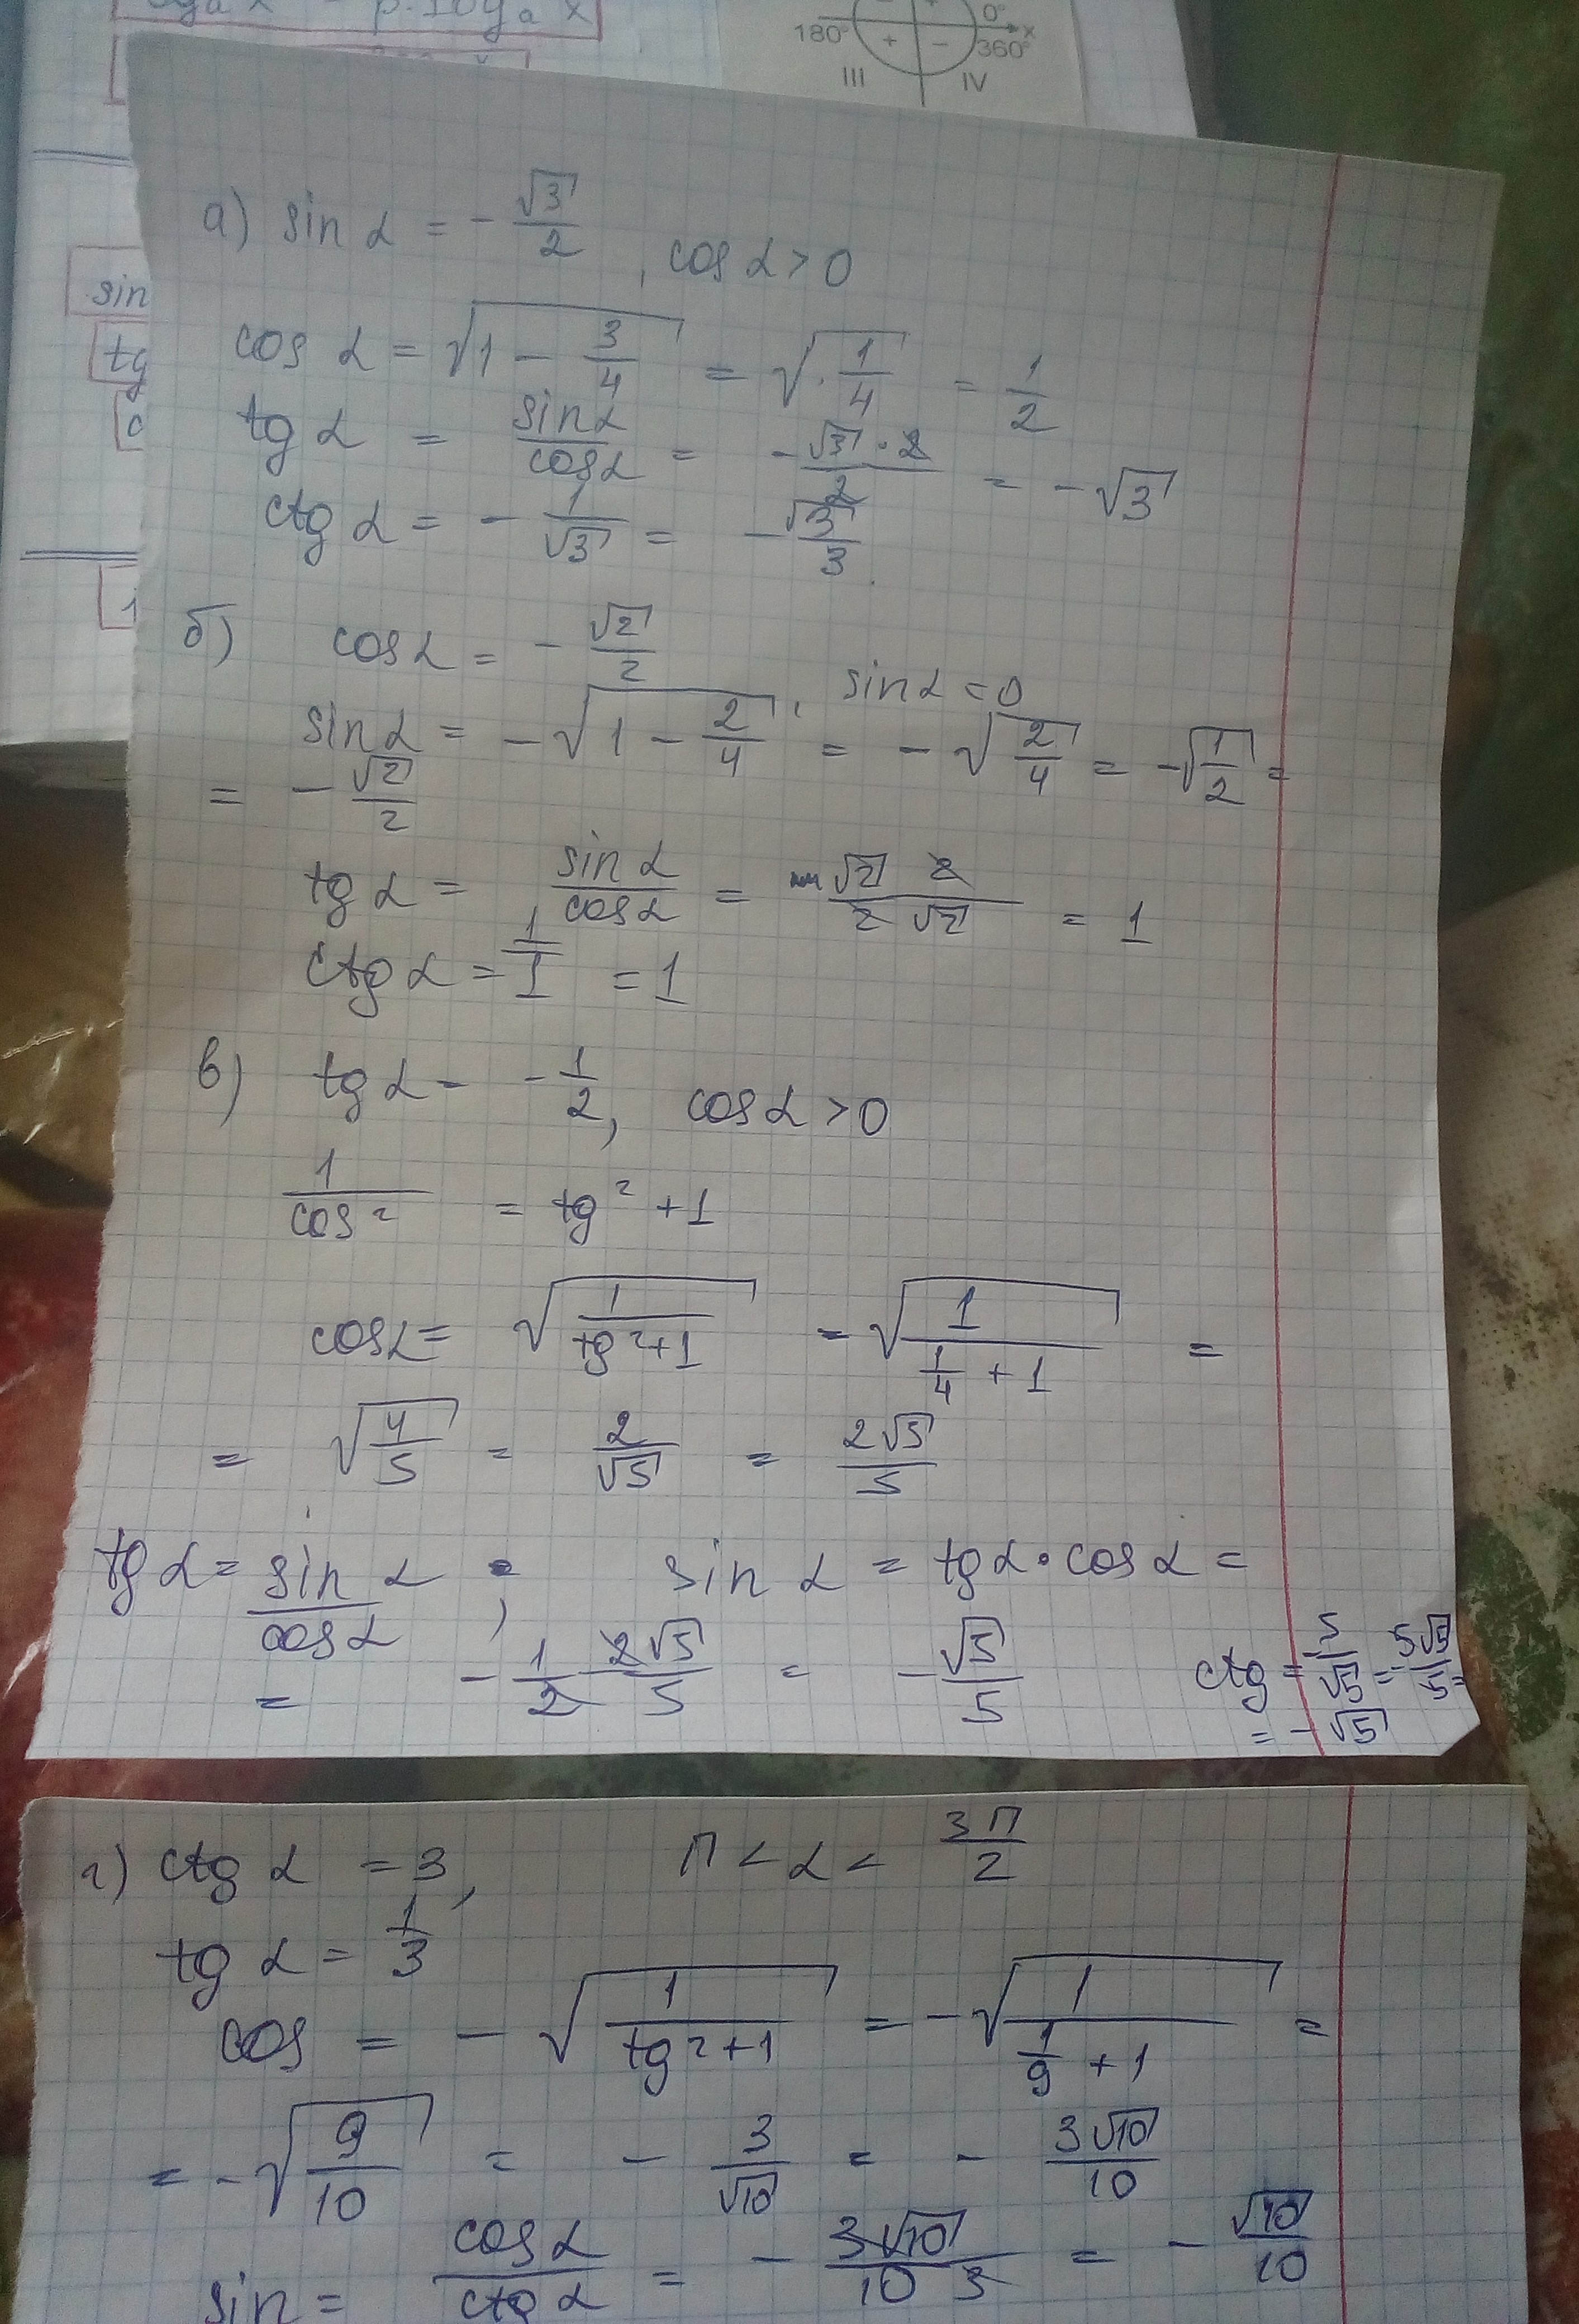 p·log a x
180°
0°
x
+
−
360°
III
IV
sin
tg
c
1
а) sin α = - √3/2 , cos α > 0
cos α = √(1 - 3/4) = √(1/4) = 1/2
tg α = sin α/cos α = - √3·2/2 = - √3
ctg α = - 1/√3 = - √3/3
б) cos α = - √2/2 , sin α = 0
sin α = - √(1 - 2/4) = - √(2/4) = - √(1/2) =
= - √2/2
tg α = sin α/cos α = √2 2/2 √2 = 1
ctg α = 1/1 = 1
в) tg α = - 1/2, cos α > 0
1/cos² = tg² + 1
cos α = √(1/(tg²+1)) = √(1/(1/4 + 1)) =
= √(4/5) = 2/√5 = 2√5/5
tg α = sin α/cos α ; sin α = tg α · cos α =
= - 1/2 2√5/5 = - √5/5
ctg = - 5/√5 = - 5√5/5 =
= - √5
г) ctg α = 3, П < α < 3П/2
tg α = 1/3
cos = - √(1/(tg²+1)) = - √(1/(1/9 + 1)) =
= - √(9/10) = - 3/√10 = - 3√10/10
sin = cos α/ctg α = - 3√10/10 3 = - √10/10